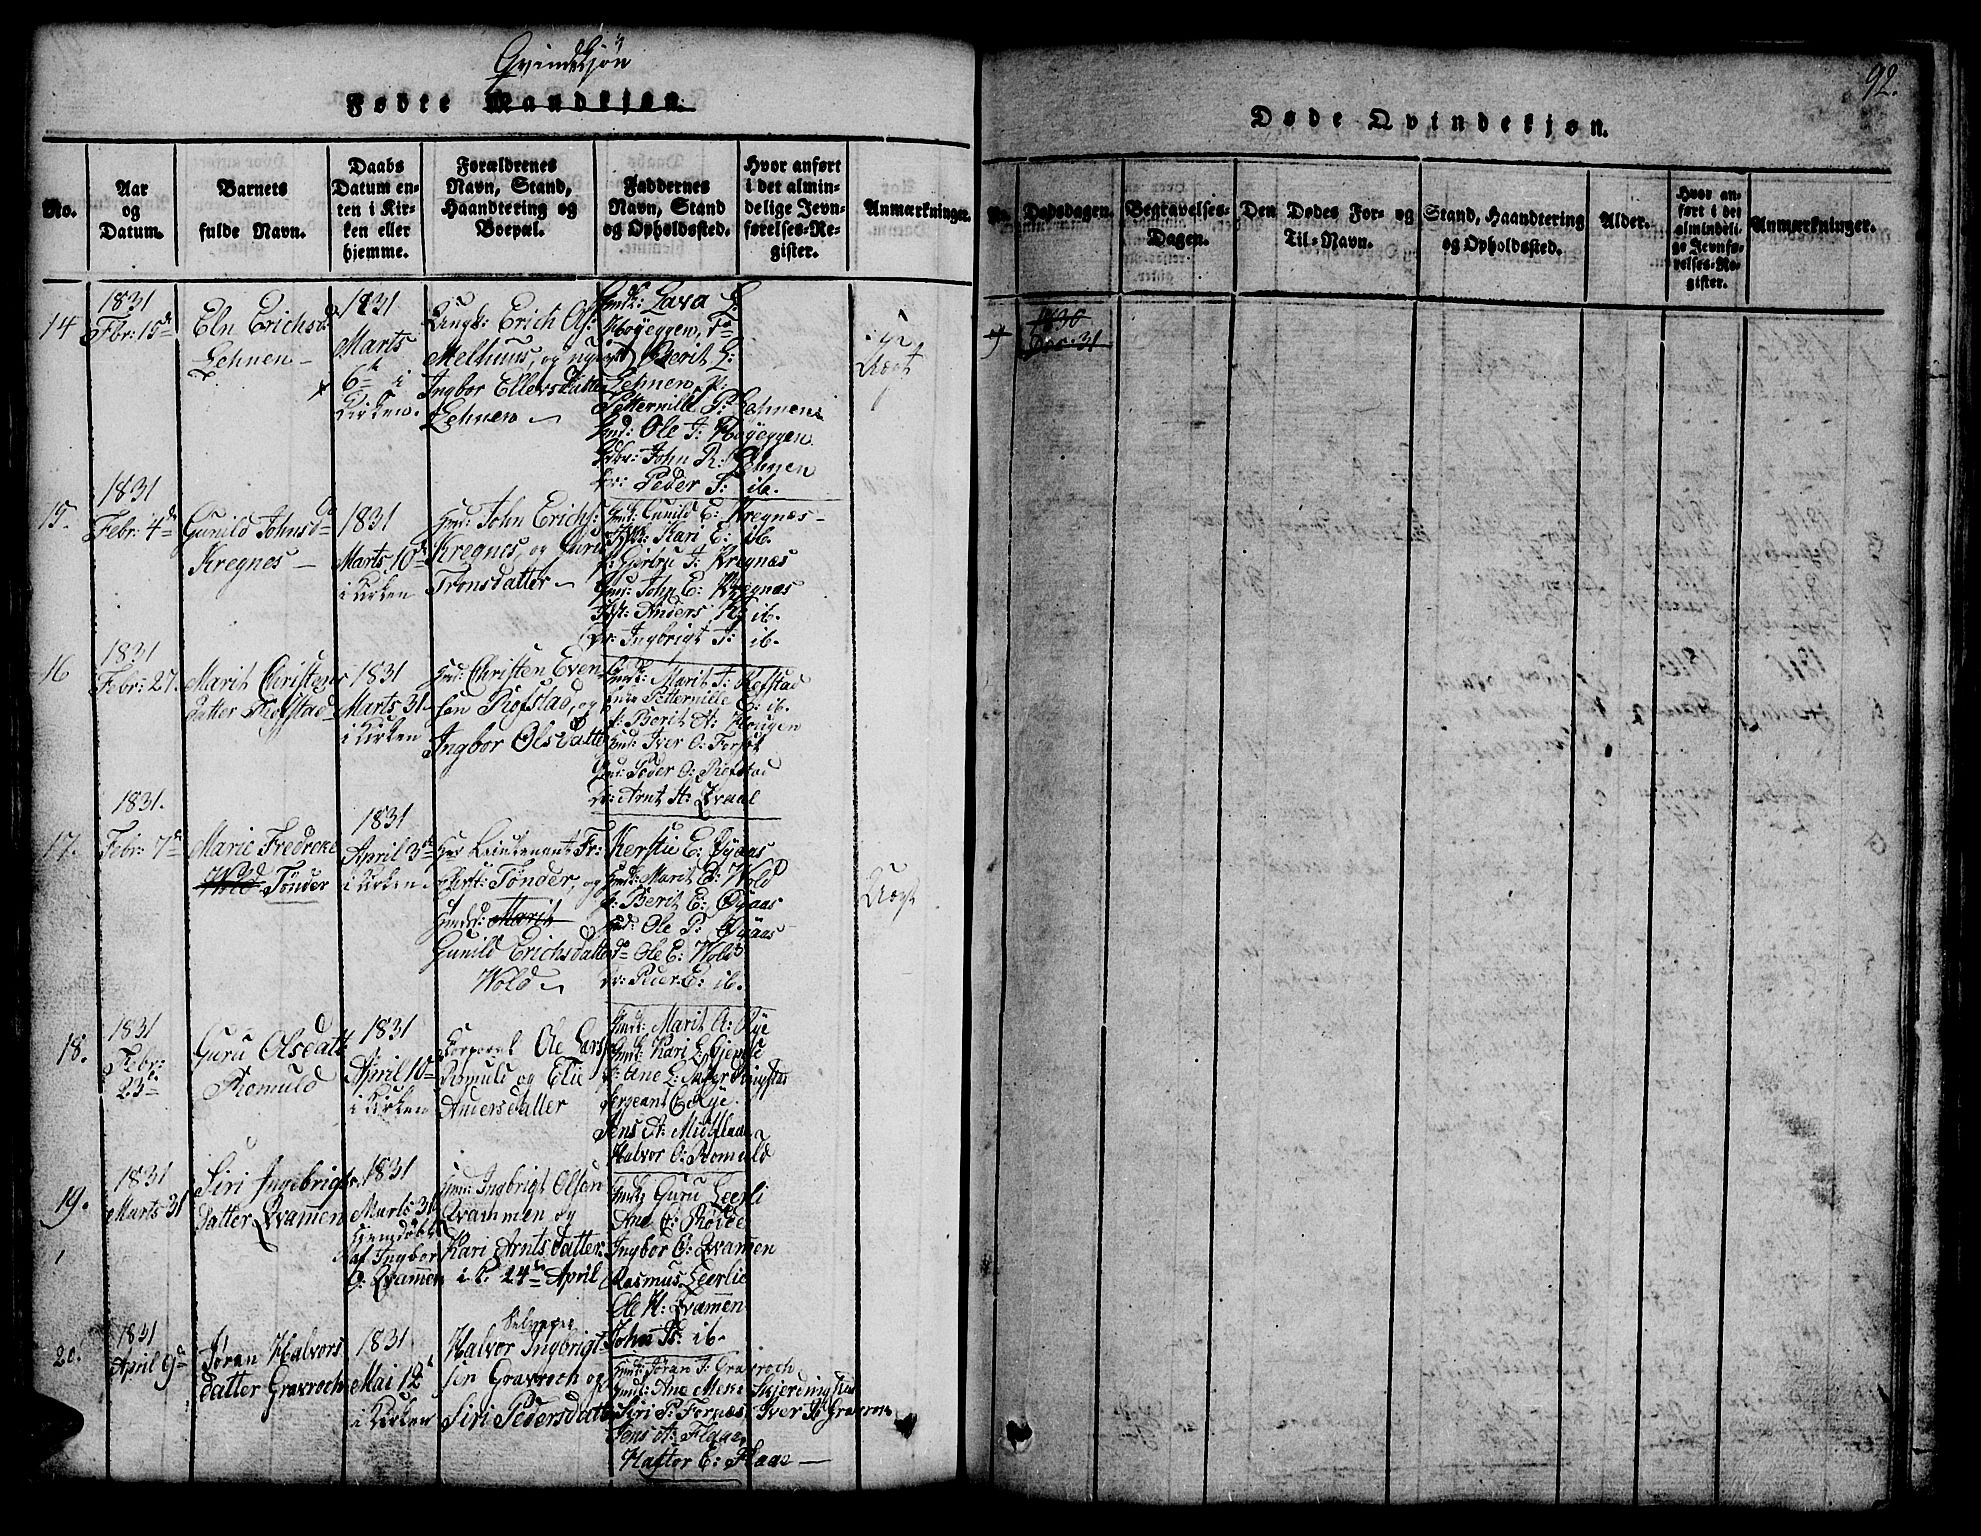 Qvindekjøn
Fødte Mandkjøn.
No.
Aar og Datum.
Barnets fulde Navn.
Daabs Datum enten i Kirken eller hjemme.
Forældrenes Navn, Stand, Haandtering og Boepæl.
Faddernes Navn, Stand og Opholdssted.
Hvor anført i det almindelige Jevnførelses-Register.
Anmærkninger.
14
1831
Fbr: 15de
Eln Erichsd
Lehnen
1831
Marts
6te i
Kirken.
Ungk: Erich Ols:
Melhuus, og
Ingbor Ellevsdatter
Lehnen
Lava
Høyeggen,
Berit L:
Lehnen, p:
Petternille P: Lehnen
Gmd: Ole J: Høyeggen
John R: Lehnen
Peder J: ib.
Uægt
15.
1831
Febr: 4de
Gunild Johnsd
Kregnes
1831
Marts 10de
i Kirken
Gmd: John Erichs:
Kregnes, og Guru
Tronsdatter
Gunild E: Kregnæs
Kari E: ib.
p: Gjertru J: Kregnæs
Gmd: John E: Kregnæs
Anders K: ib.
Dr: Ingbrigt J: ib.
16
1831
Febr: 27.
Marit Christens
datter Rofstad
1831
Marts 31
i Kirken
Gmd: Christen Even
sen Rofstad, og
Ingbor Olsdatter
Marit J: Rofstad
Petternille E: ib.
p: Berit A: Hougen
Gmd: Iver O: Forset
Gmd: Peder O: Rofstad
Dr: Arnt H: Qvaal
17.
1831.
Febr: 7de
Marie Fredreke
Wold Tönder
1831
April 3de
i Kirken.
Hr Lieutenant Fr:
Tönder, og
Marit
Gunild Erichsdatter
Wold
Kerstie E: Øyaas
Marit E: Wold
p: Berit E: Øyaas
Gmd: Ole P: Øyaas
do Ole E: Wold
Dr: Peder E: ib.
Uægt
18.
1831
Febr:
23de
Guru Olsdatt
Romuld
1831
April 10de
i Kirken
Corporal Ole Lars
Romuld og Elie
Andersdatter
Marit A: Rye
Kari L: Gjemse
p: Ane L:
Sergeant E Rye.
Jens A:
Halvor O: Romuld
19.
1831
Marts 31
Siri Ingebrigts
datter Qvamen
1831
Marts 31
hjemdøbt
af Ingbor
O: Qvamen
Gmd: Ingbrigt Olsen
Qvammen og
Kari Arntsdatter
i K. 24de April
Guru Leerli
Ane O: Rödde
Ingbor O: Qvamen
Rasmus Leerlie
Ole H: Qvamen
John ib.
20.
1831
April 9de
Jöran Halvors
datter Gravroch
1831
Mai 12te
i Kirken
Selveyer
Halvor Ingbrigt
sen Gravroch og
Siri Pedersdatter
Jøran J: Gravroch
Ane
Siri P: Fornæs Iver Gravroch
Jens A: Flaae
Haftor E: Flaae
92.
Døde Qvindekjøn.
No.
Dødsdagen.
Begravelses-Dagen.
Den Dødes For- og Til-Navn.
Stand, Haandtering og Opholdssted.
Alder.
Hvor anført i det almindelige Jevnførelses-Register.
Anmærkninger.
1830
Dec: 31